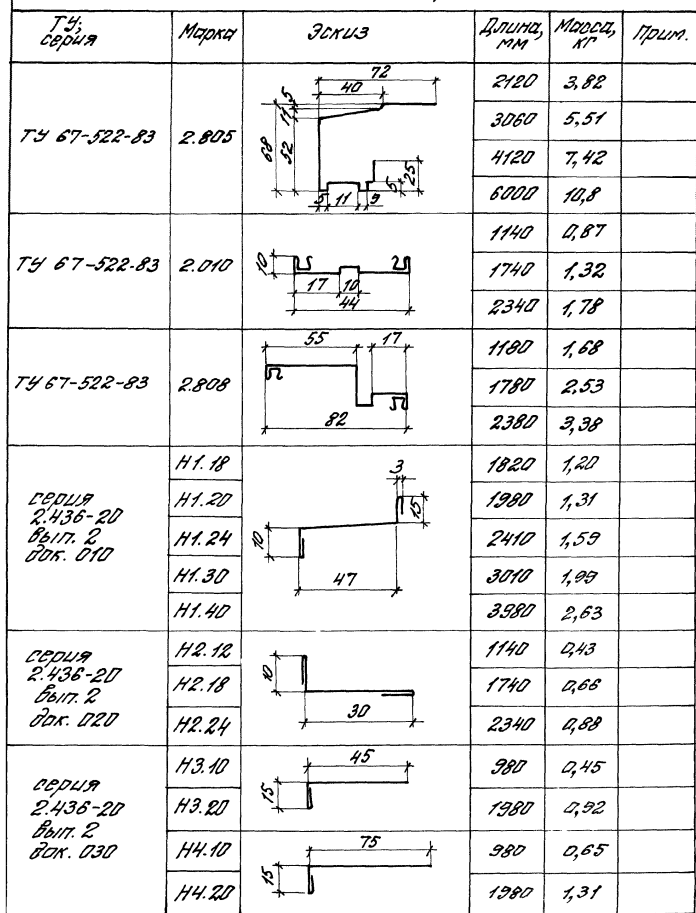 ТУ, серия Марка Эскиз Длина, мм Масса, кг Прим.
ТУ 67-522-83 2.805
72
40
5
11
68
52
5 11 9
5
25
2120 3,82
3060 5,51
4120 7,42
6000 10,8
ТУ 67-522-83 2.010
10
17 10
44
1140 0,87
1740 1,32
2340 1,78
ТУ 67-522-83 2.808
55 17
82
1180 1,68
1780 2,53
2380 3,38
серия
2.436-20
вып. 2
док. 010
Н1.18 1820 1,20
Н1.20 1980 1,31
Н1.24 2410 1,59
Н1.30 3010 1,99
Н1.40 3980 2,63
3
15
10
47
серия
2.436-20
вып. 2
док. 020
Н2.12 1140 0,43
Н2.18 1740 0,66
Н2.24 2340 0,88
10
30
серия
2.436-20
вып. 2
док. 030
Н3.10 980 0,45
Н3.20 1980 0,92
45
15
Н4.10 980 0,65
Н4.20 1980 1,31
75
15